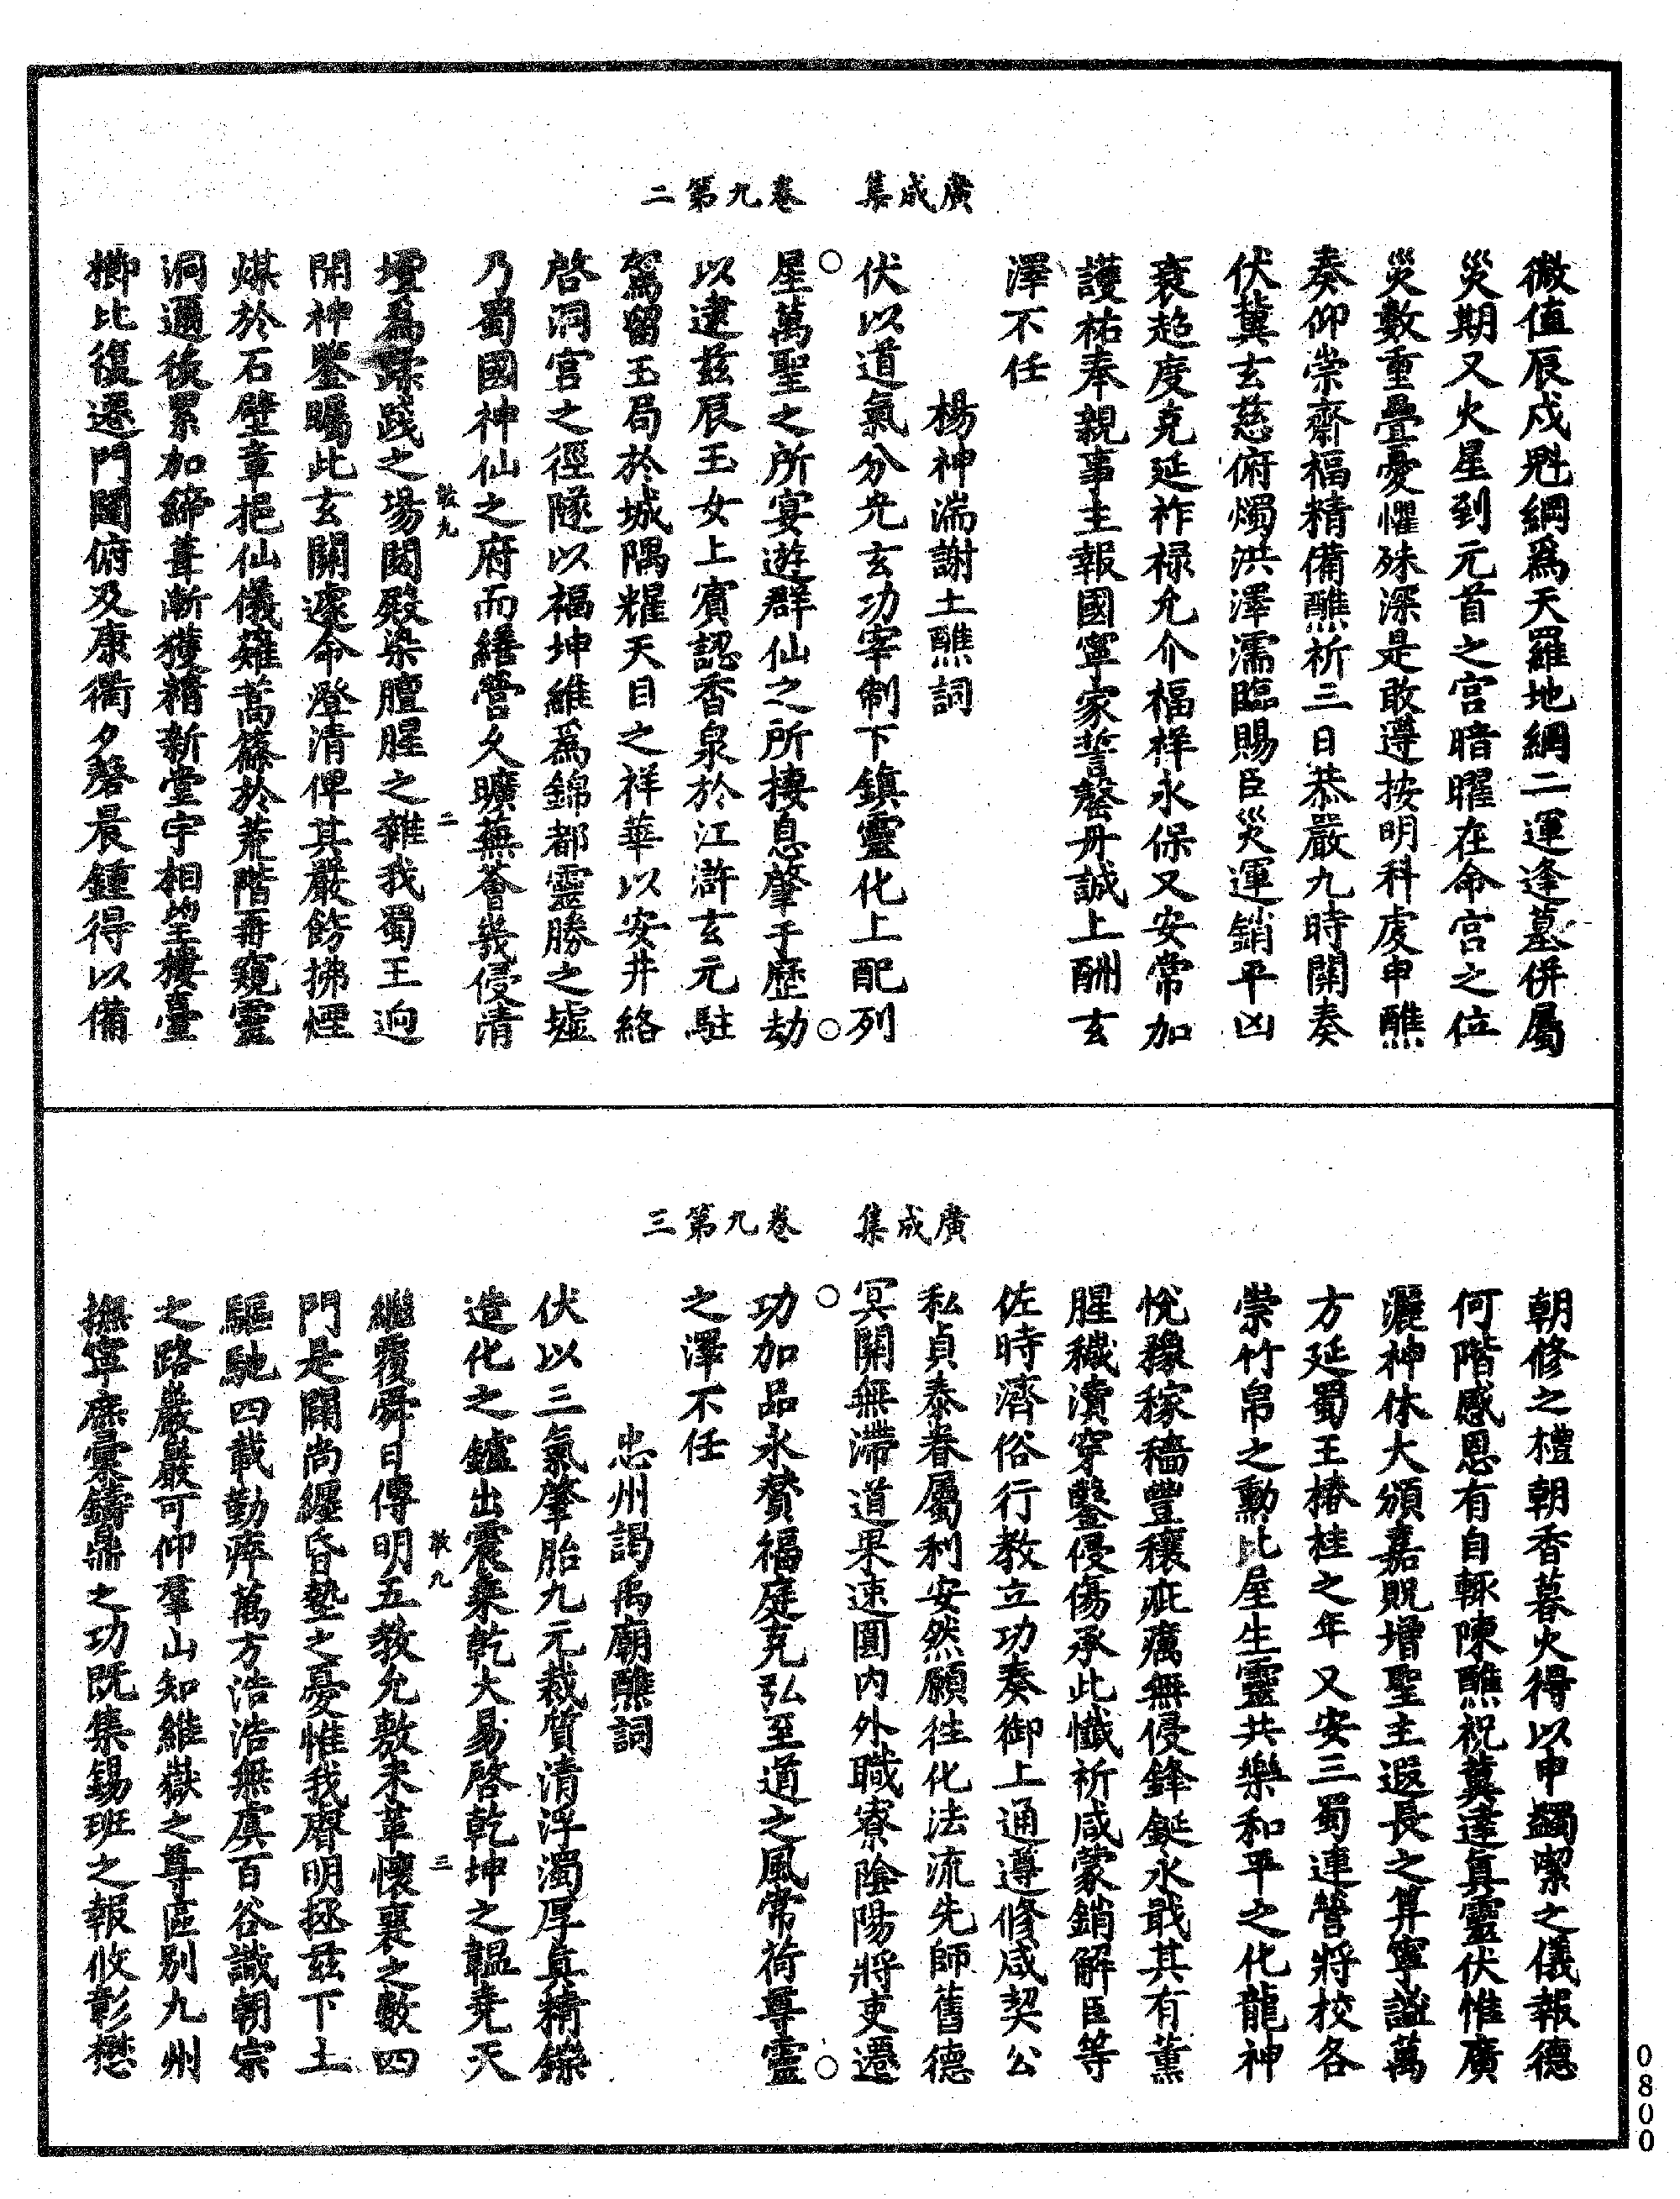 廣成集　卷九第二
微值辰戍魁綱爲天羅地網二運逢墓併屬
災期又火星到元首之宫暗曜在命宫之位
災數重疊憂懼殊深是敢遵按明科虔申醮
奏仰崇齋福精備醮祈三日恭嚴九時開奏
伏冀玄慈俯燭洪澤濡臨賜臣災運銷平凶
衰超度克延祚禄允介福祥永保乂安常加
護祐奉親事主報國寧家誓罄丹誠上酬玄
澤不任
楊神湍謝土醮詞
伏以道氣分光玄功宰制下鎮靈化上配列
星萬聖之所宴遊群仙之所棲息肇于歷劫
以逮兹辰玉女上賓認香泉於江滸玄元駐
駕留玉局於城隅糶天目之祥華以安井絡
啓洞宫之徑隧以福坤維爲錦都靈勝之墟
乃蜀國神仙之府而繕營久曠蕪薈幾侵清
壇爲蹂踐之場閟殿染膻腥之雜我蜀王迥
開神鑒矚此玄關遽命澄清俾其嚴飭拂煙
煤於石壁章挹仙儀薙蒿篠於荒階再窺靈
洞邇後累加締葺漸獲精新堂宇相望樓臺
櫛比復還門闥俯及康衢夕磬晨鍾得以備
敢九
二
廣成集　卷九第三
朝修之禮朝香暮火得以申蠲潔之儀報德
何階感恩有自輙陳醮祝冀達真靈伏惟廣
灑神休大頒嘉貺增聖主遐長之算寧謐萬
方延蜀王椿桂之年乂安三蜀連營將校各
崇竹帛之勳比屋生靈共樂和平之化龍神
悅豫稼穡豐穰疵癘無侵鋒鋋永戢其有薰
腥穢瀆穿鑿侵傷承此懺祈咸蒙銷解臣等
佐時濟俗行教立功奏御上通遵修咸契公
私貞泰眷屬利安然願往化法流先師舊德
冥關無滯道果速圓内外職寮陰陽將吏遷
功加品永贊福庭克弘至道之風常荷尊靈
之澤不任
忠州謁禹廟醮詞
伏以三氣肇胎九元裁質清浮濁厚真精鎔
造化之鑪出震乘乾大易啓乾坤之韞堯天
繼覆舜日傳明五教允敷未革懷襄之數四
門是闢尚纒昏墊之憂惟我睿明拯兹下土
驅馳四載勤瘁萬方浩浩無虞百谷識朝宗
之路巖巖可仰羣山知維嶽之尊區别九州
撫寧庶彙鑄鼎之功既集錫班之報攸彰懋
敢九
三
0800